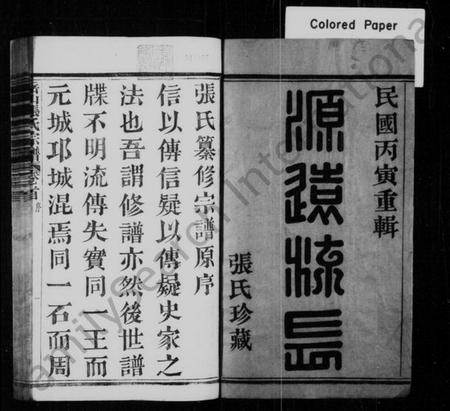 Colored Paper
民國丙寅重輯
源遠流長
張氏珍藏
張氏纂修宗譜原序
信以傳信疑以傳疑史家之
法也吾謂修譜亦然後世譜
牒不明流傳失實同一王而
元城邛城混焉同一石而周